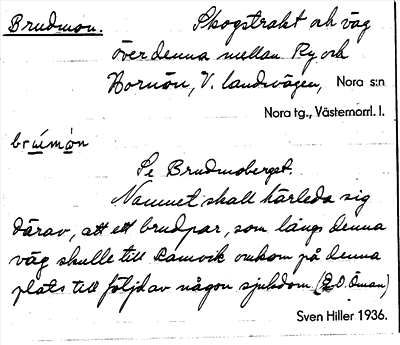 Brudmon. Skogstrakt och väg
över denna mellan Ry och
Hornön, V. landsvägen, Nora s:n
Nora tg., Västernorrl. l.
brúmòn
Se Brudmoberget.
Namnet skall härleda sig
därav, att ett brudpar, som längs denna
väg skulle till Ramvik omkom på denna
plats till följd av någon sjukdom (E.O. Öman)
Sven Hiller 1936.